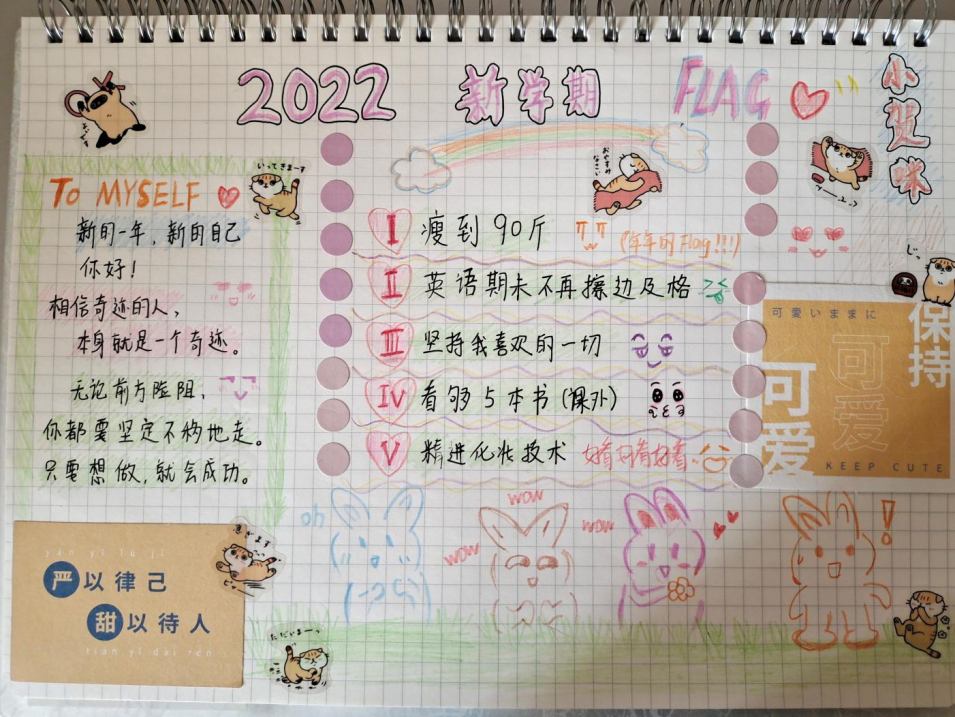 2022 新学期 FLAG
小贺咪
TO MYSELF
新的一年，新的自己
你好！
相信奇迹的人，
本身就是一个奇迹。
无论前方险阻，
你都要坚定不移地走。
只要想做，就会成功。
いってきまーす
おやすみなさい
I 瘦到90斤 (年年的Flag!!!)
II 英语期末不再擦边及格
III 坚持我喜欢的一切
IV 看够5本书(课外)
V 精进化妆技术 好看好看好看
じっ
可愛いままに
保持
可爱
可爱
KEEP CUTE
oh
wow
wow
wow
!
yán yǐ lǜ jǐ
严以律己
甜以待人
tián yǐ dài rén
急ぎます
ただいまーっ